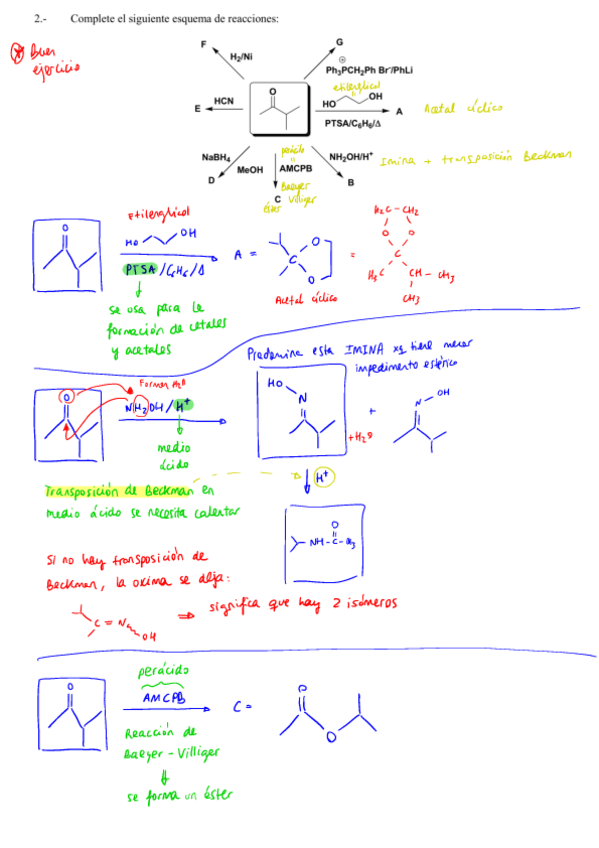 2.- Complete el siguiente esquema de reacciones:
Buen ejercicio
F
H2/Ni
G
Ph3PCH2Ph Br-/PhLi
etilenglicol
HO OH
PTSA/C6H6/Δ
A
Acetal cíclico
E
HCN
O
NaBH4
MeOH
D
perácido
AMCPB
C
Baeyer
Villiger
éster
NH2OH/H+
B
Imina + transposición Beckman
etilenglicol
HO OH
PTSA/C6H6/Δ
se usa para la
formación de cetales
y acetales
A =
O
C
O
Acetal cíclico
=
H2C – CH2
O O
C
H3C CH – CH3
CH3
Predomina esta IMINA xq tiene menor
impedimento estérico
O
Forman H2O
NH2OH/H+
medio
ácido
HO
N
+ H2O
+
N – OH
H+
Transposición de Beckman en
medio ácido se necesita calentar
O
NH-C-CH3
Si no hay transposición de
Beckman, la oxima se deja:
C = N OH
⇒ significa que hay 2 isómeros
O
perácido
AMCPB
Reacción de
Baeyer-Villiger
se forma un éster
C =
O
O